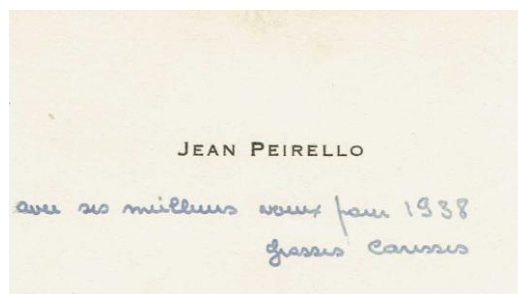 JEAN PEIRELLO
avec ses meilleurs voeux pour 1938
grosses caresses